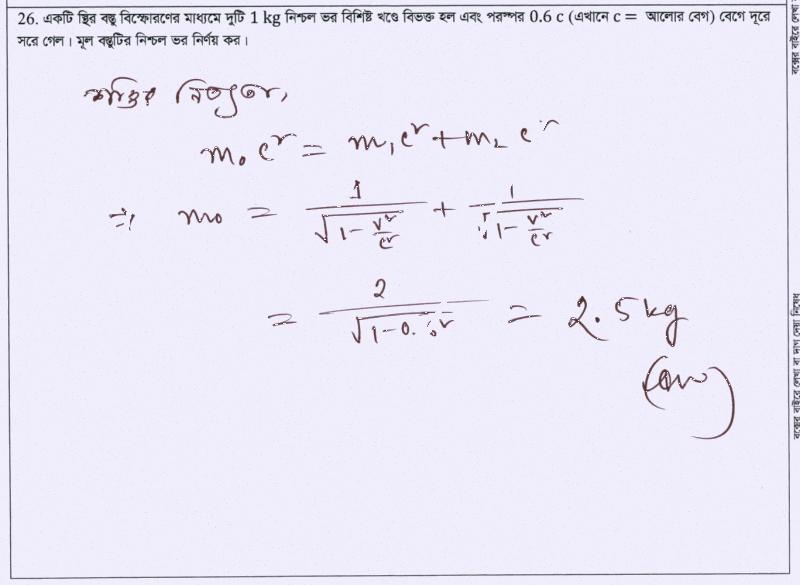 26. একটি স্থির বস্তু বিস্ফোরণের মাধ্যমে দুটি 1 kg নিশ্চল ভর বিশিষ্ট খণ্ডে বিভক্ত হল এবং পরস্পর 0.6 c (এখানে c = আলোর বেগ) বেগে দূরে
সরে গেল। মূল বস্তুটির নিশ্চল ভর নির্ণয় কর।
শক্তির নিত্যতা,
m₀ c² = m₁c² + m₂ c²
⇒ m₀ = 1/√(1 - v²/c²) + 1/√(1 - v²/c²)
= 2/√(1-0.6²) = 2.5 kg
(Ans)